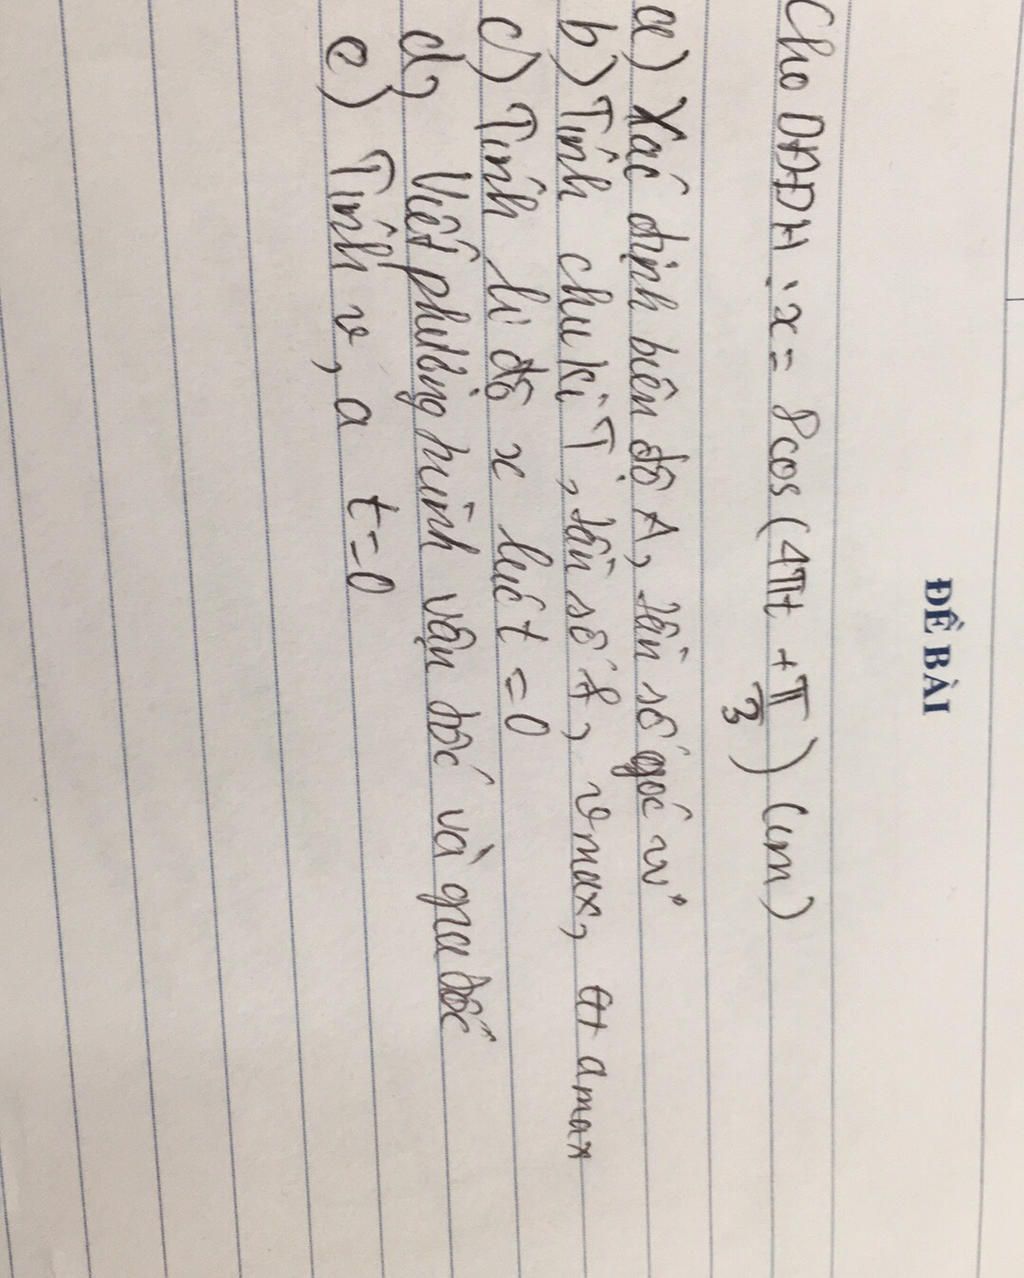 ĐỀ BÀI
Cho DĐĐH: x = 8cos(4πt + π/3) (cm)
a) Xác định biên độ A, tần số góc w
b) Tính chu kì T, tần số f, vmax, amax
c) Tính li độ x lúc t = 0
d) Viết phương trình vận tốc và gia tốc
e) Tính v, a t = 0